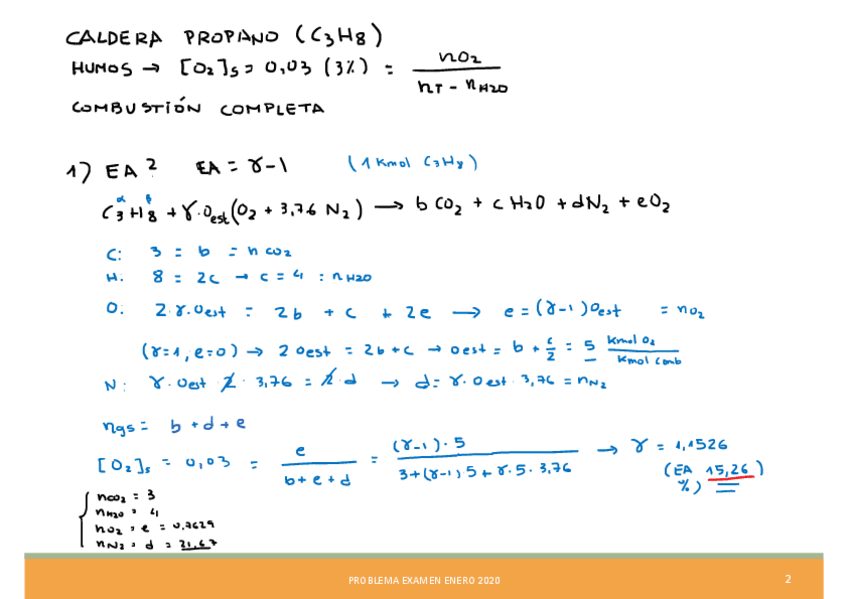 CALDERA PROPANO (C3H8)
HUMOS → [O2]s = 0,03 (3%) = nO2 / (nT - nH2O)
COMBUSTIÓN COMPLETA
1) EA? EA = γ-1 (1 Kmol C3H8)
α β
C3H8 + γ·Oest(O2 + 3,76 N2) → b CO2 + c H2O + dN2 + eO2
C: 3 = b = nCO2
H: 8 = 2c → c = 4 : nH2O
O: 2·γ·Oest = 2b + c + 2e → e = (γ-1)Oest = nO2
(γ=1, e=0) → 2 Oest = 2b+c → Oest = b + c/2 = 5 Kmol O2 / Kmol Comb
N: γ·Oest·2·3,76 = 2·d → d = γ·Oest·3,76 = nN2
ngs = b + d + e
[O2]s = 0,03 = e / (b + e + d) = (γ-1)·5 / (3+(γ-1)5+γ·5·3,76) → γ = 1,1526
(EA 15,26)
%)
nCO2 = 3
nH2O = 4
nO2 = e = 0,7629
nN2 = d = 21,67
PROBLEMA EXAMEN ENERO 2020
2